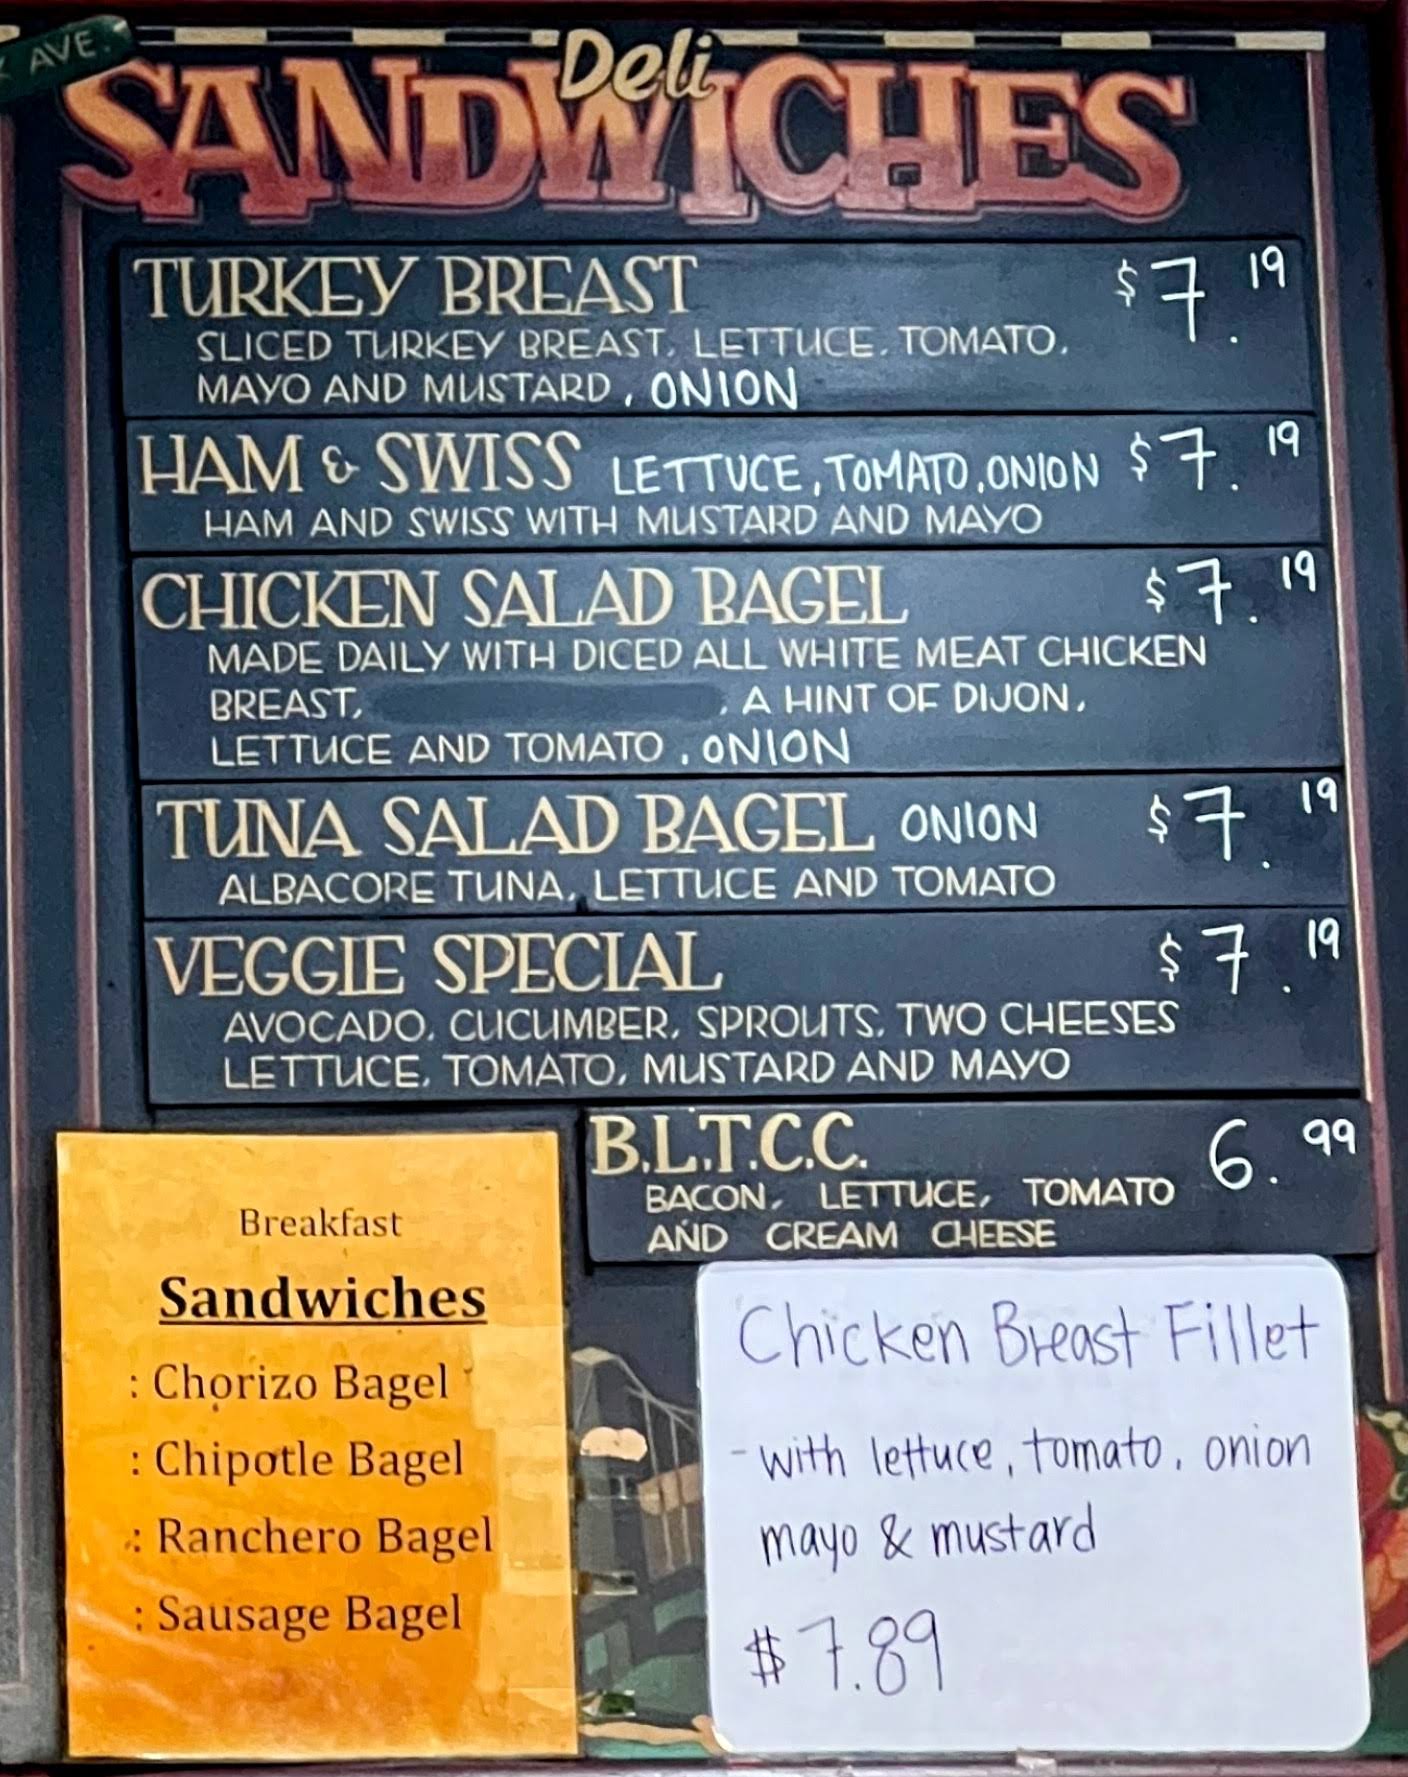 AVE.
Deli
SANDWICHES
TURKEY BREAST $7.19
SLICED TURKEY BREAST, LETTUCE, TOMATO,
MAYO AND MUSTARD, ONION
HAM & SWISS LETTUCE, TOMATO, ONION $7.19
HAM AND SWISS WITH MUSTARD AND MAYO
CHICKEN SALAD BAGEL $7.19
MADE DAILY WITH DICED ALL WHITE MEAT CHICKEN
BREAST, , A HINT OF DIJON,
LETTUCE AND TOMATO, ONION
TUNA SALAD BAGEL ONION $7.19
ALBACORE TUNA, LETTUCE AND TOMATO
VEGGIE SPECIAL $7.19
AVOCADO, CUCUMBER, SPROUTS, TWO CHEESES
LETTUCE, TOMATO, MUSTARD AND MAYO
B.L.T.C.C. 6.99
BACON, LETTUCE, TOMATO
AND CREAM CHEESE
Breakfast
Sandwiches
: Chorizo Bagel
: Chipotle Bagel
: Ranchero Bagel
: Sausage Bagel
Chicken Breast Fillet
- with lettuce, tomato, onion
mayo & mustard
$7.89